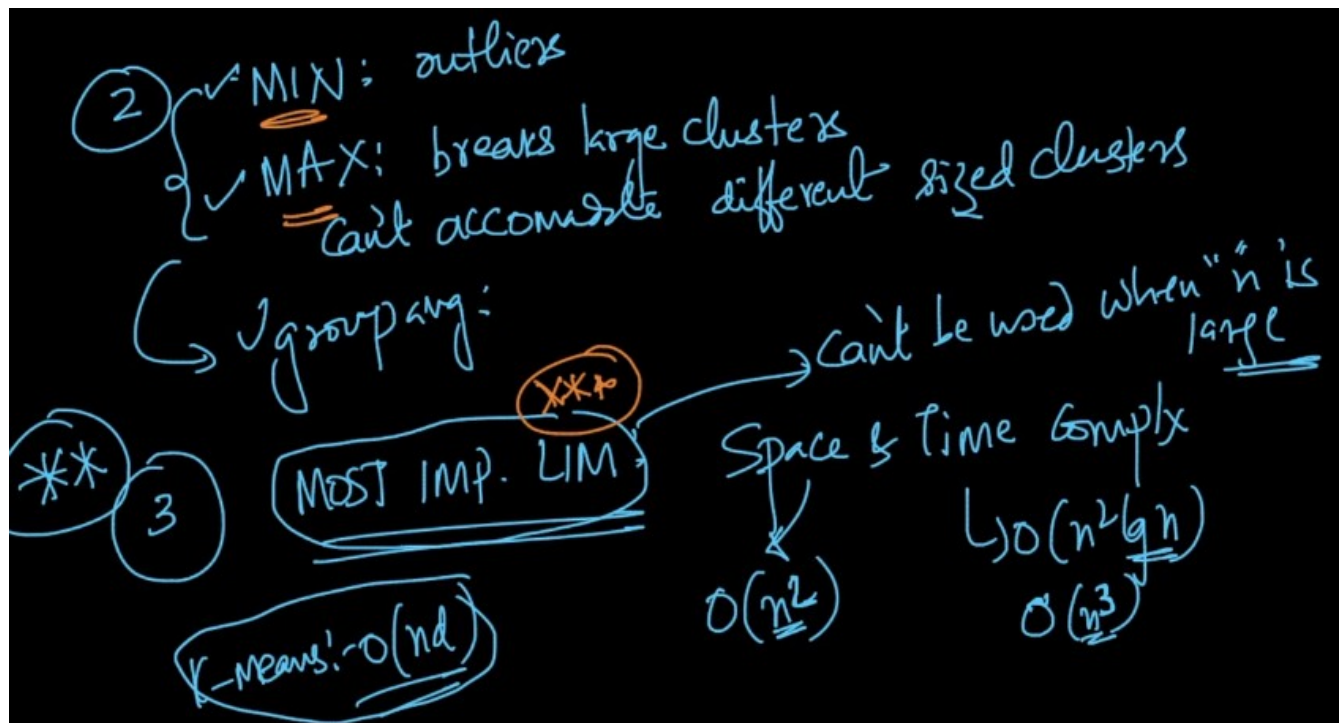 2 ✓ MIN: outliers
✓ MAX: breaks large clusters
Can't accomadate different sized clusters
✓ group avg:
Can't be used when "n" is
large
***
** 3 MOST IMP. LIM
Space & Time Complx
O(n²) O(n² lg n)
O(n³)
K-means:- O(nd)